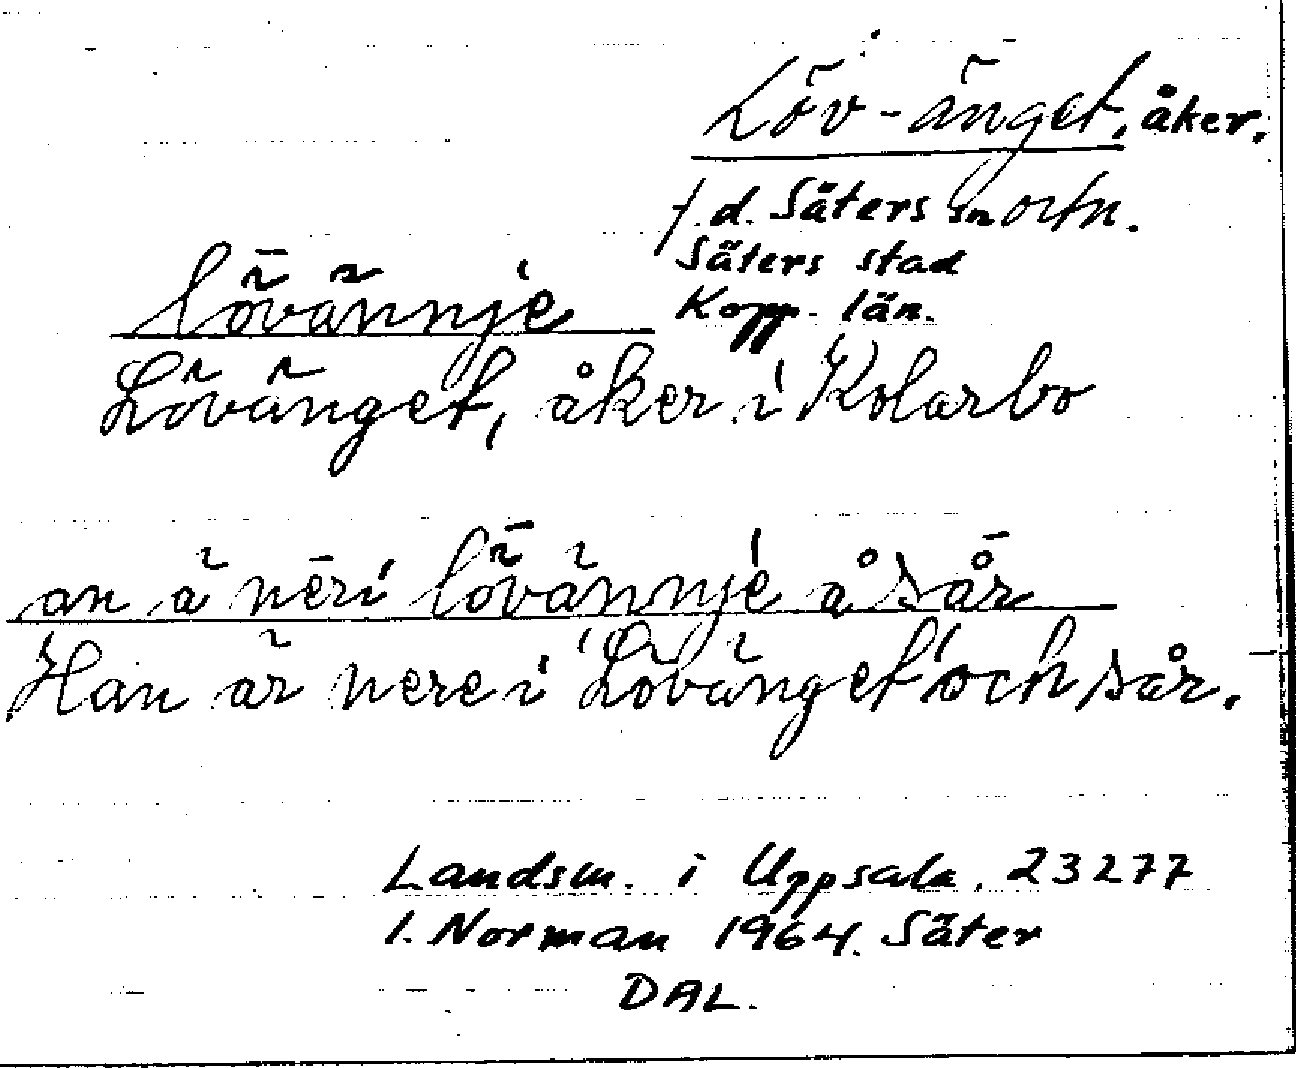 Löv-änget, åker.
f.d. Säters sn
Säters stad
Kopp. län.
lövännje
Lövänget, åker i Kolarbo
an ä neri lövännje å sår
Han är nere i Lövänget och sår.
Landsm. i Uppsala. 23277
I. Norman 1964. Säter
DAL.